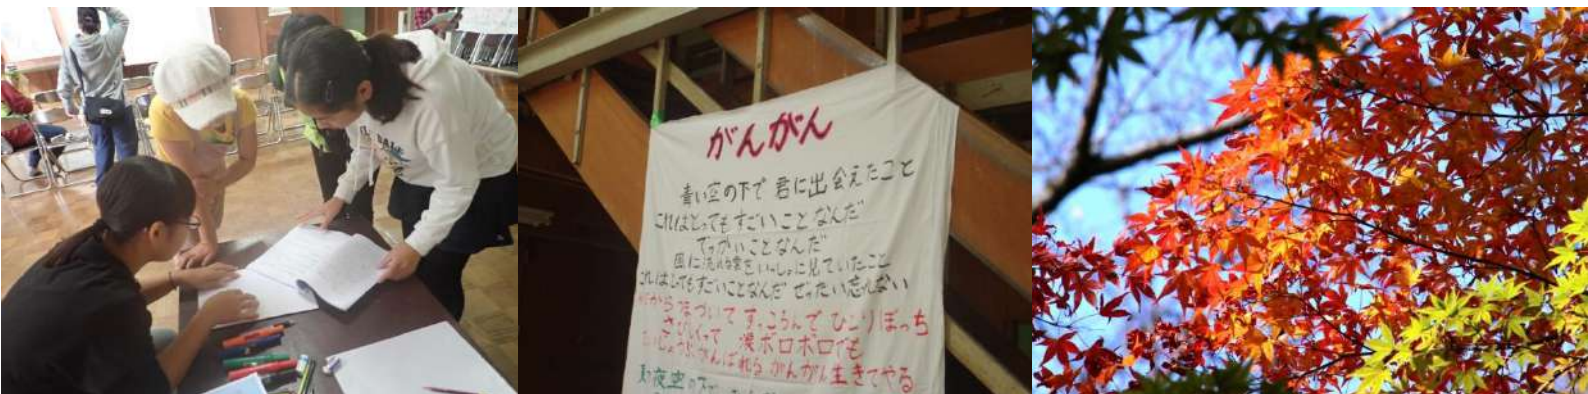 がんがん
青い空の下で 君に出会えたこと
これはとってもすごいことなんだ
でっかいことなんだ
風に流れる雲をいっしょに見ていたこと
これはとってもすごいことなんだ ぜったい忘れない
だから 傷ついて すっころんで ひとりぼっち
さびしくって 涙ボロボロでも
だいじょうぶ がんばれる がんがん生きてやる
夜空の下で